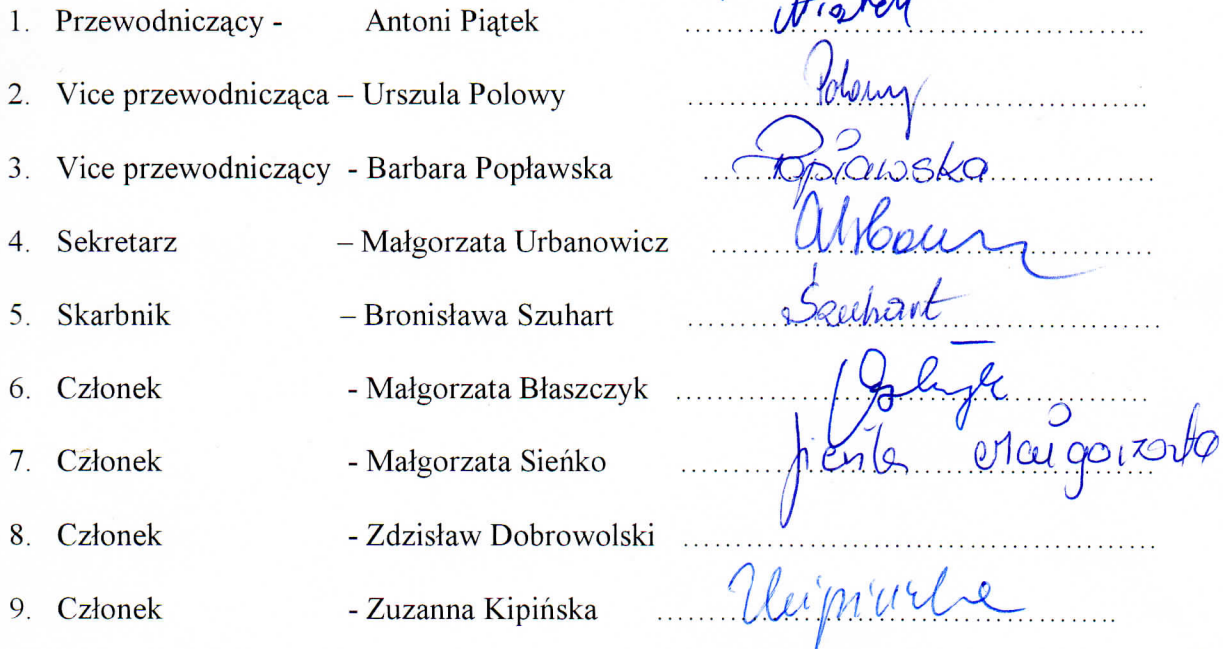 1. Przewodniczący - Antoni Piątek ........ Piątek
2. Vice przewodnicząca – Urszula Polowy ........ Polowy
3. Vice przewodniczący - Barbara Popławska ........ Popławska
4. Sekretarz – Małgorzata Urbanowicz ........
5. Skarbnik – Bronisława Szuhart ........ Szuhart
6. Członek - Małgorzata Błaszczyk ........
7. Członek - Małgorzata Sieńko ........ Sieńko Małgorzata
8. Członek - Zdzisław Dobrowolski ........
9. Członek - Zuzanna Kipińska ........